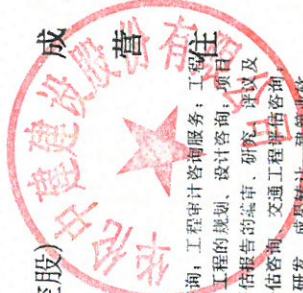 控股)
成
营
住
询；工程审计咨询服务；工程
工程的规划、设计咨询；项目
估报告的编审、研究、评议及
估咨询、交通工程评估咨询
华伦中建建设股份有限公司